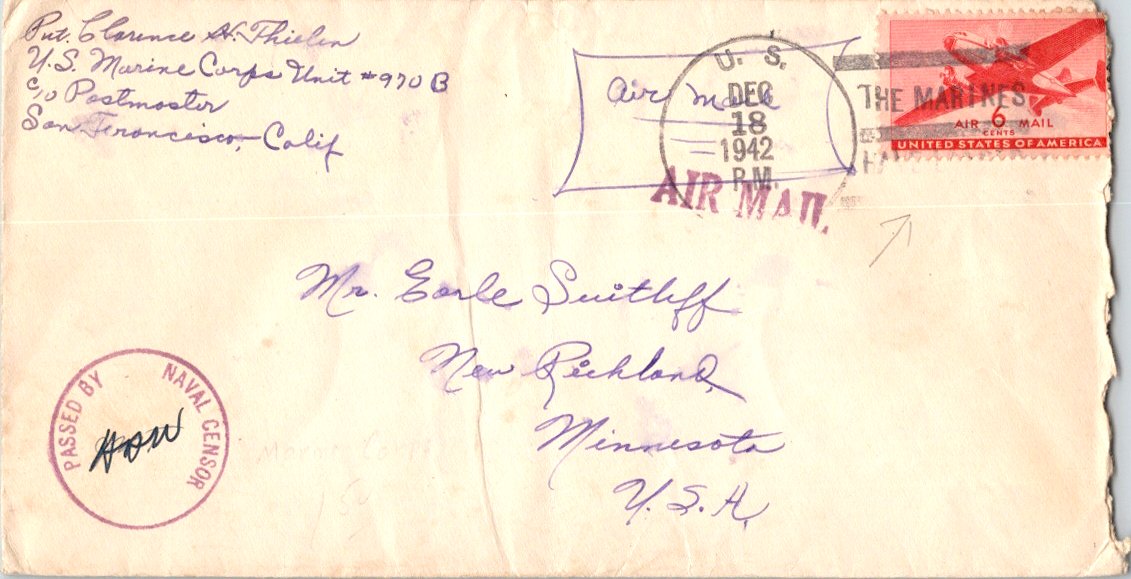 Pvt. Clarence H. Thielen
U.S. Marine Corps Unit #970 B
c/o Postmaster
San Francisco, Calif
Air Mail
U. S.
DEC
18
1942
P.M.
THE MARINES
AIR 6 MAIL
CENTS
UNITED STATES OF AMERICA
AIR MAIL
Mr. Earle Suitliff
New Richland,
Minnesota
U.S.A.
PASSED BY NAVAL CENSOR